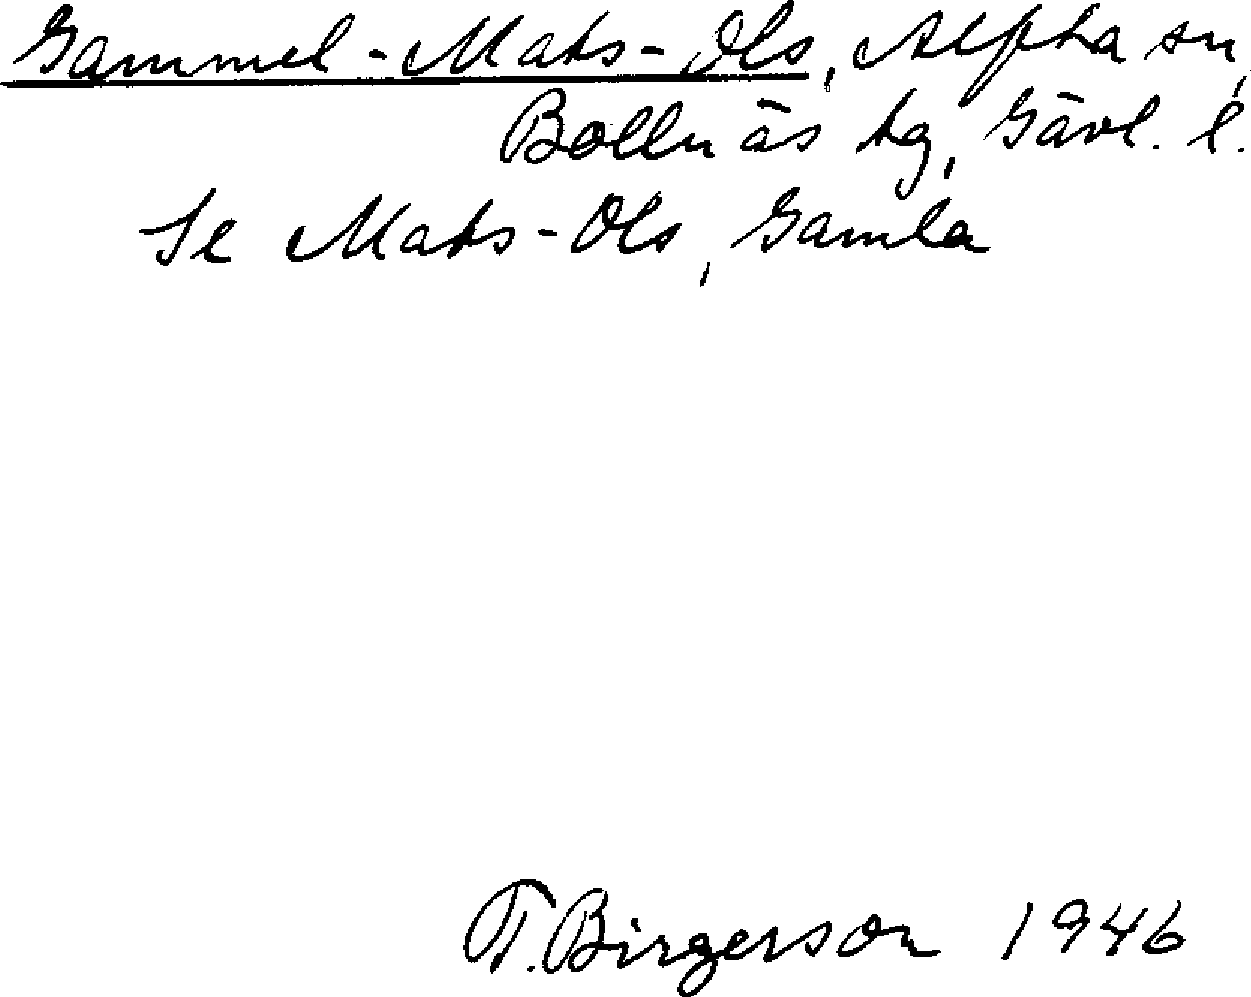 Gammel-Mats-Ols, Alfta sn,
Bollnäs tg, Gävl. l.
Se Mats-Ols, Gamla
T. Birgerson 1946